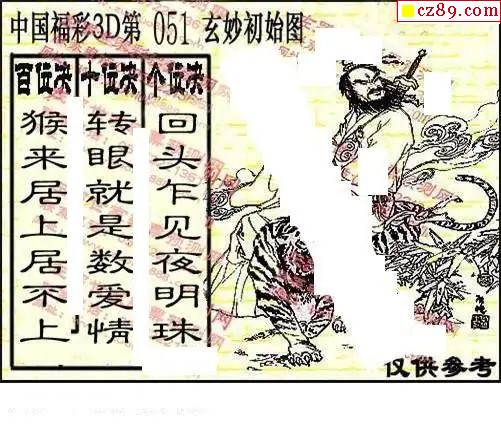 cz89.com
中国福彩3D第 051 玄妙初始图
百位决 十位决 个位决
猴来居上居不上
转眼就是数爱情
回头乍见夜明珠
仅供参考